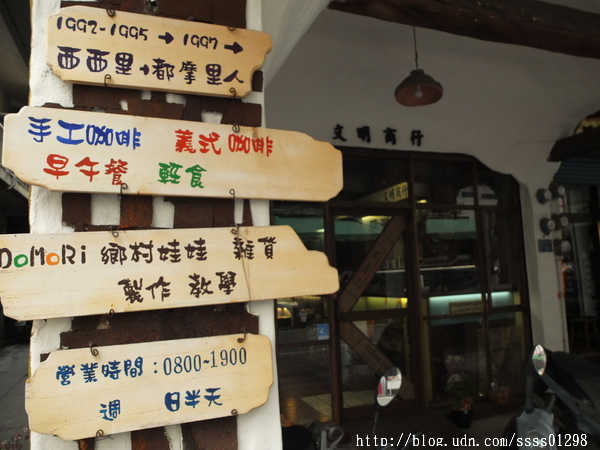 1992-1995→1997→
西西里→都摩里人
手工咖啡 義式咖啡
早午餐 輕食
DoMoRi 鄉村娃娃 雜貨
製作 教學
營業時間：0800~1900
週 日半天
文明商行
文明商行
http://blog.udn.com/ssss01298